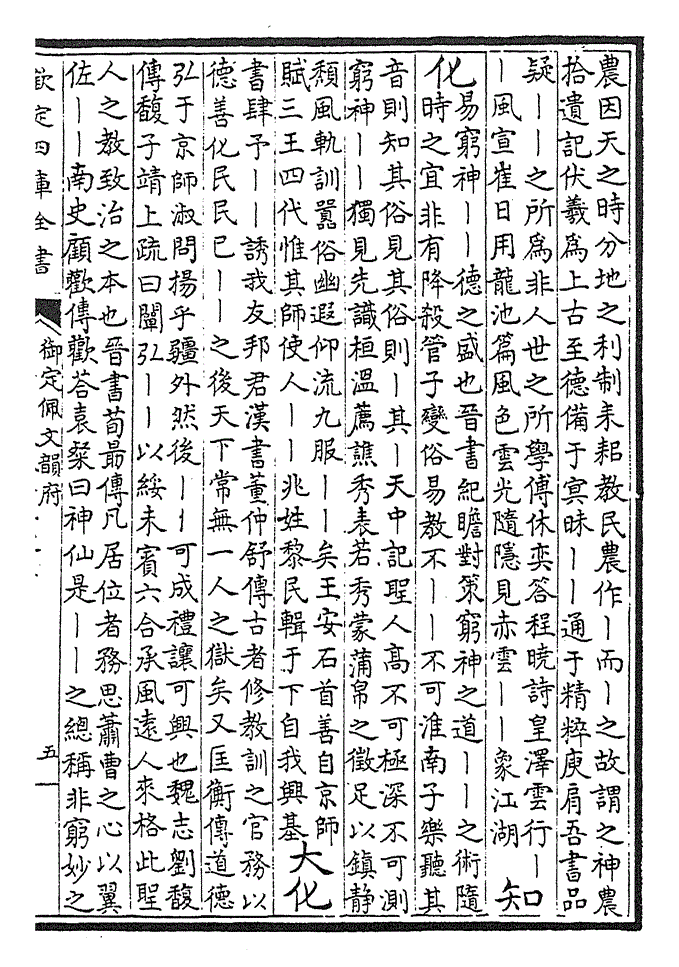 農因天之時分地之利制耒耜教民農作丨而丨之故謂之神農
拾遺記伏羲爲上古至德備于㝠昧丨丨通于精粹庾肩吾書品
疑丨丨之所爲非人世之所學傅休奕答程曉詩皇澤雲行丨
丨風宣崔日用龍池篇風色雲光隨隱見赤雲丨丨象江湖
知
化
易窮神丨丨德之盛也晉書紀瞻對策窮神之道丨丨之術隨
時之宜非有降殺管子變俗易教不丨丨不可淮南子樂聽其
音則知其俗見其俗則丨其丨天中記聖人高不可極深不可測
窮神丨丨獨見先識桓溫薦譙秀表若秀蒙蒲帛之徵足以鎮静
頹風軌訓囂俗幽遐仰流九服丨丨矣王安石首善自京師
賦三王四代惟其師使人丨丨兆姓黎民輯于下自我興基
大化
書肆予丨丨誘我友邦君漢書董仲舒傳古者修教訓之官務以
德善化民民已丨丨之後天下常無一人之獄矣又匡衡傳道德
弘于京師淑問揚乎疆外然後丨丨可成禮讓可興也魏志劉馥
傳馥子靖上疏曰闡弘丨丨以綏未賓六合承風遠人來格此聖
人之教致治之本也晉書荀勗傳凡居位者務思蕭曹之心以翼
佐丨丨南史顧歡傳歡荅袁粲曰神仙是丨丨之總稱非窮妙之
欽定四庫全書
御定佩文韻府
五